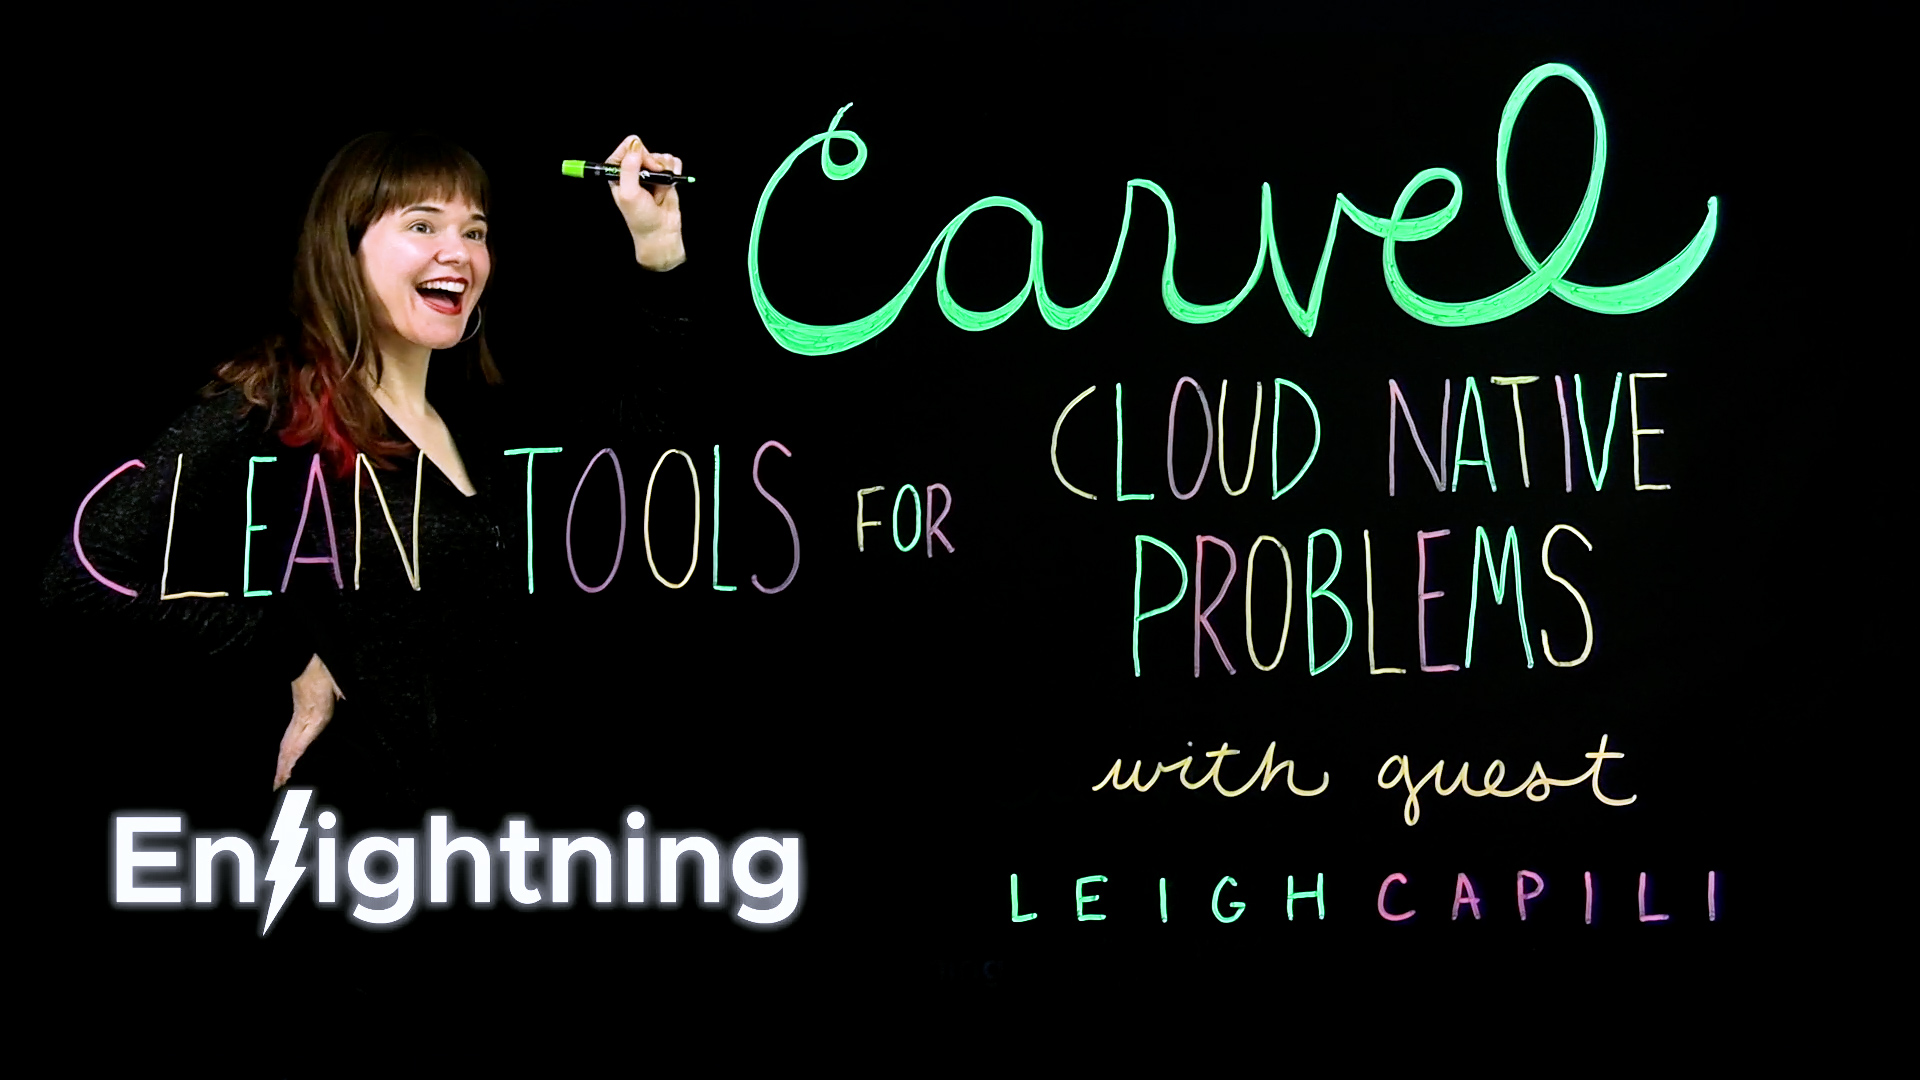 Carvel
CLEAN TOOLS FOR
CLOUD NATIVE
PROBLEMS
with guest
LEIGH CAPILI
Enlightning